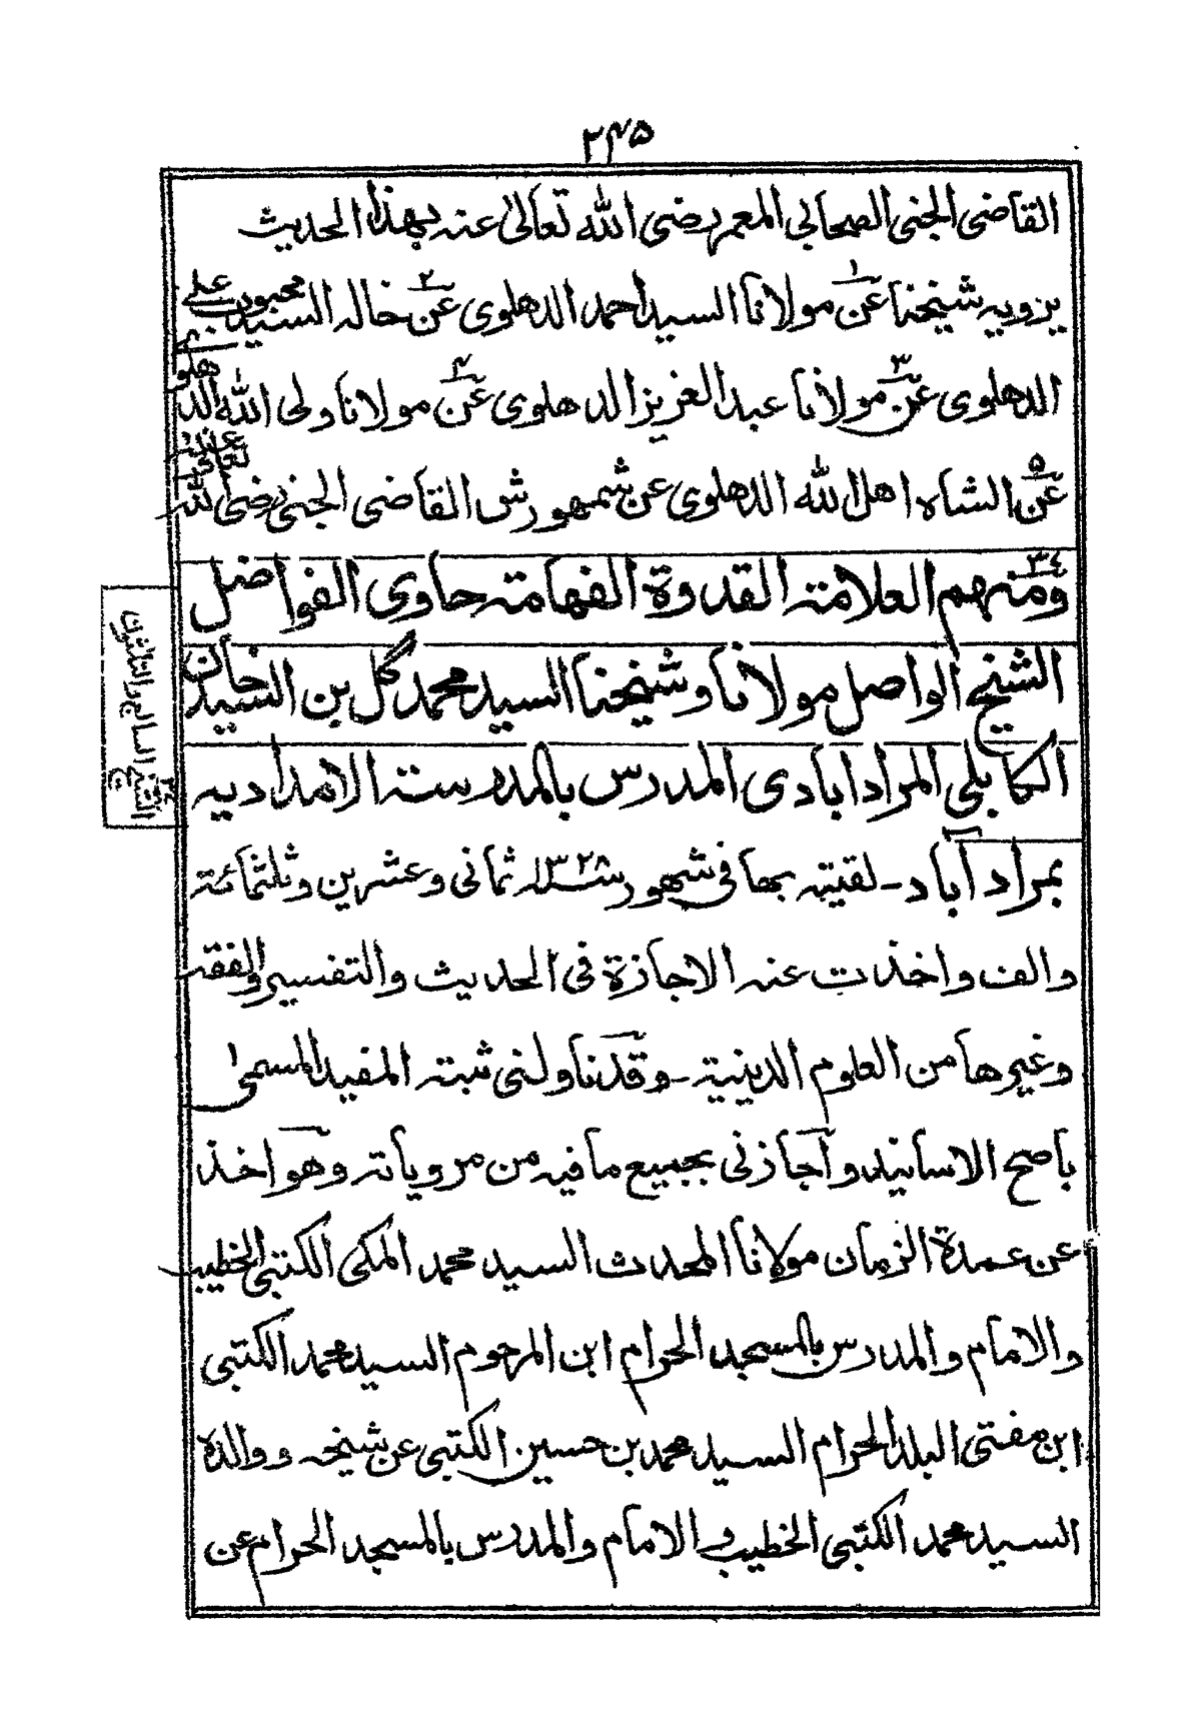 ٢٣٥
القاضى الجنى الصحابي المعمر رضى الله تعالىٰ عنه بهذا الحديث
يرويه شيخنا عن١ مولانا السيد احمد الدهلوى عن٢ خاله السيد محبوب على
الدهلوى عن٣ مولانا عبد العزيز الدهلوى عن٤ مولانا ولى الله الدهلو
عن٥ الشاه اهل الله الدهلوى عن شمهورش القاضى الجنى رضى الله تعالى عنه
٣٤ ومنهم العلامة القدوة الفهامة حاوى الفواضل
الشيخ الواصل مولانا وشيخنا السيد محمد گل بن السيد خان
الكابلى المرادابادى المدرس بالمدرسة الامدادیه
بمراد آباد - لقيته بها فى شهور ١٣٢٨ ثمانى وعشرين وثلثمائة
والف واخذت عنه الاجازة فى الحديث والتفسير والفقه
وغيرها من العلوم الدينية - وقد ناولنى ثبته المفيد المسمى
باصح الاسانيد واجازنى بجميع ما فيه من مروياته وهو اخذ
عن عمدة الزمان مولانا المحدث السيد محمد المكى الكتبى الخطيب
والامام والمدرس بالمسجد الحرام ابن المرحوم السيد محمد الكتبى
ابن مفتى البلد الحرام السيد محمد بن حسين الكتبى عن شيخه ووالده
السيد محمد الكتبى الخطيب والامام والمدرس بالمسجد الحرام عن
الشيخ الرابع والثلثون